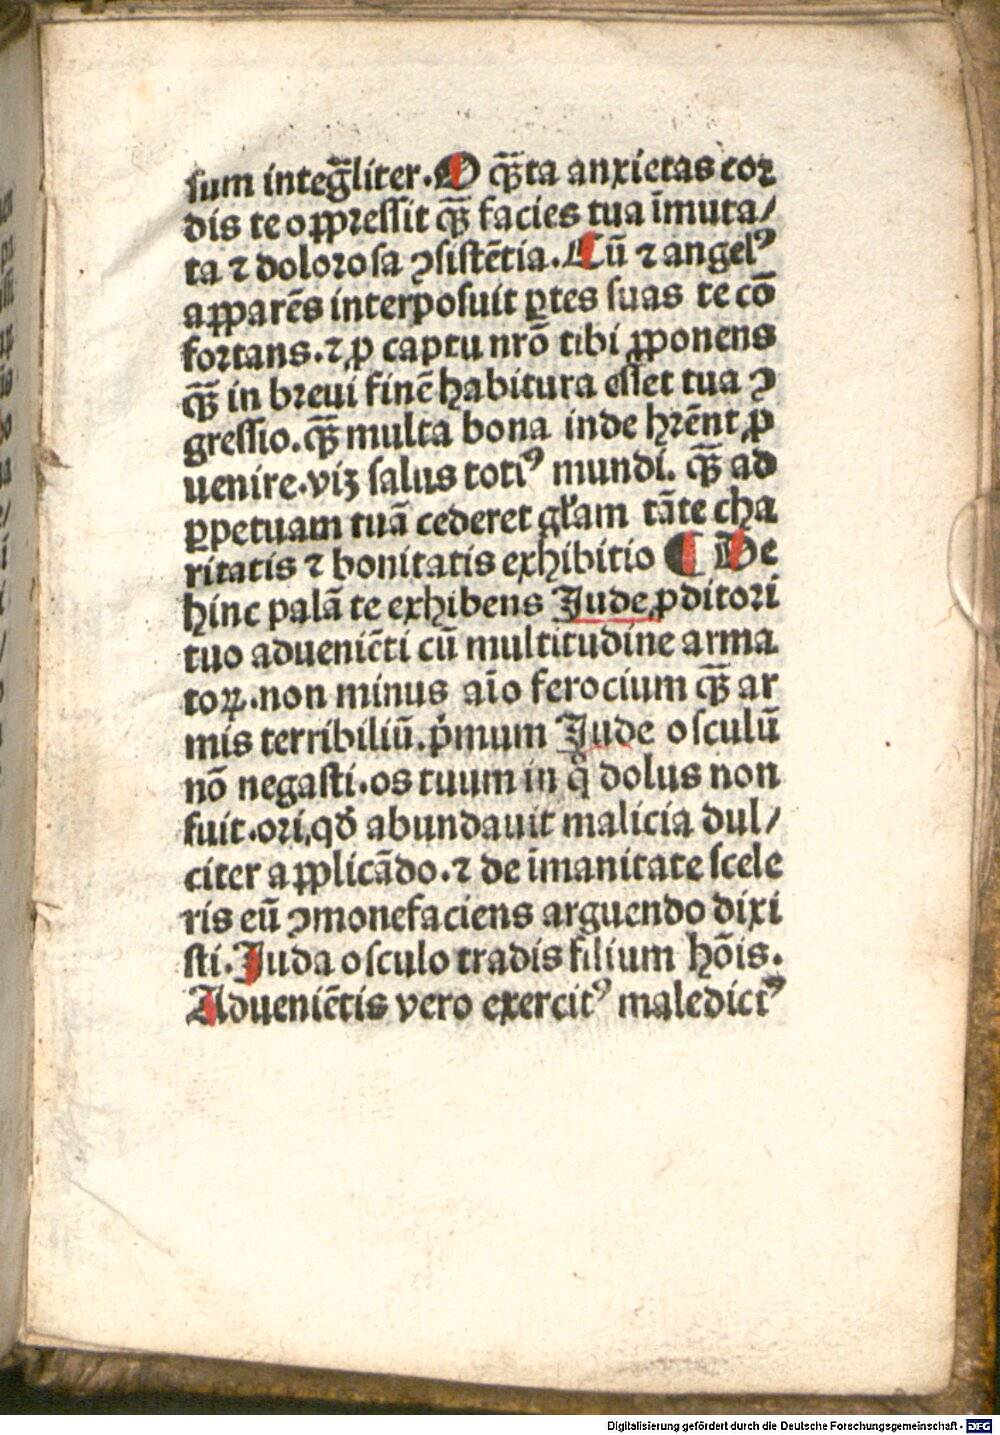 sum integr̄liter. O qȝ̄ta anxietas coꝛ
dis te oꝓpꝛessit qȝ̄ facies tua īmuta/
ta ⁊ doloꝛosa ꝯsistētia. Cū ⁊ angelꝰ
aꝓparēs interposuit ꝑtes suas te cō
foꝛtans. ⁊ ꝓ captu nrō tibi ꝓponens
qȝ̄ in bꝛeui finē habitura esset tua ꝯ
gressio. qȝ̄ multa bona inde hrēnt ꝓ
uenire. viz salus totiꝰ mundi. qȝ̄ ad
ꝑpetuam tuā cederet głam tāte cha
ritatis ⁊ bonitatis exhibitio ¶ De
hinc palā te exhibens Jude ꝓditoꝛi
tuo aduenieti cū multitudine arma
toꝝ. non minus aīo ferocium qȝ̄ ar
mis terribiliū. pͥmum Jude osculū
nō negasti. os tuum in qͦ dolus non
fuit. oꝛi, qđ abundauit malicia dul/
citer aꝓplicādo. ⁊ de īmanitate scele
ris eū ꝯmonefaciens arguendo dixi
sti. Juda osculo tradis filium hōis.
Adueniētis vero exercitꝰ maledictꝰ
Digitalisierung gefördert durch die Deutsche Forschungsgemeinschaft - DFG